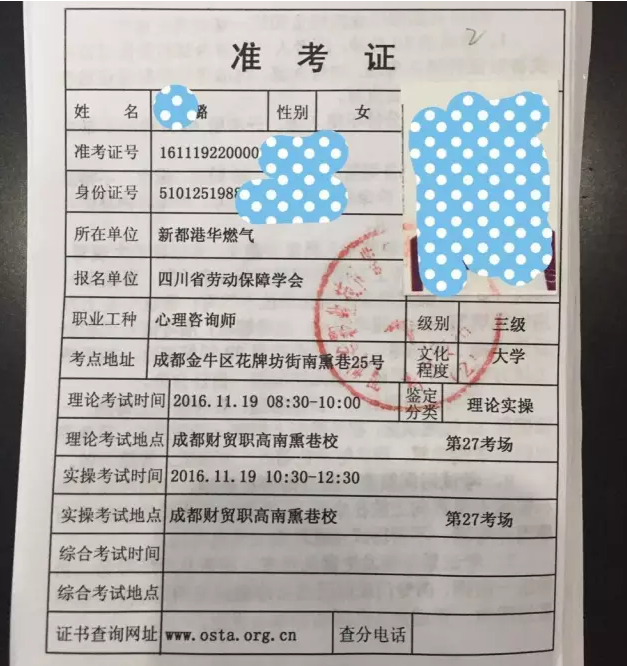 2
准考证
姓名 璐 性别 女
准考证号 161119220000
身份证号 510125198
所在单位 新都港华燃气
报名单位 四川省劳动保障学会
职业工种 心理咨询师 级别 三级
考点地址 成都金牛区花牌坊街南熏巷25号 文化程度 大学
理论考试时间 2016.11.19 08:30-10:00 鉴定分类 理论实操
理论考试地点 成都财贸职高南熏巷校 第27考场
实操考试时间 2016.11.19 10:30-12:30
实操考试地点 成都财贸职高南熏巷校 第27考场
综合考试时间
综合考试地点
证书查询网址 www.osta.org.cn 查分电话